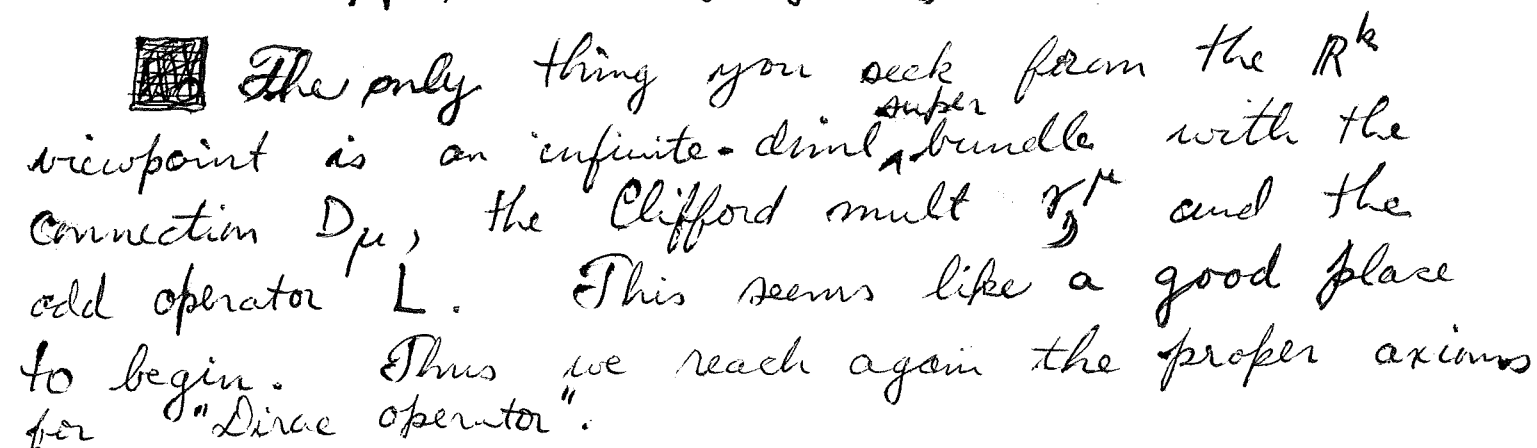 The only thing you seek from the ℝ^k
viewpoint is an infinite-diml super bundle with the
connection D_μ, the Clifford mult γ^μ and the
odd operator L. This seems like a good place
to begin. Thus we reach again the proper axioms
for "Dirac operator".